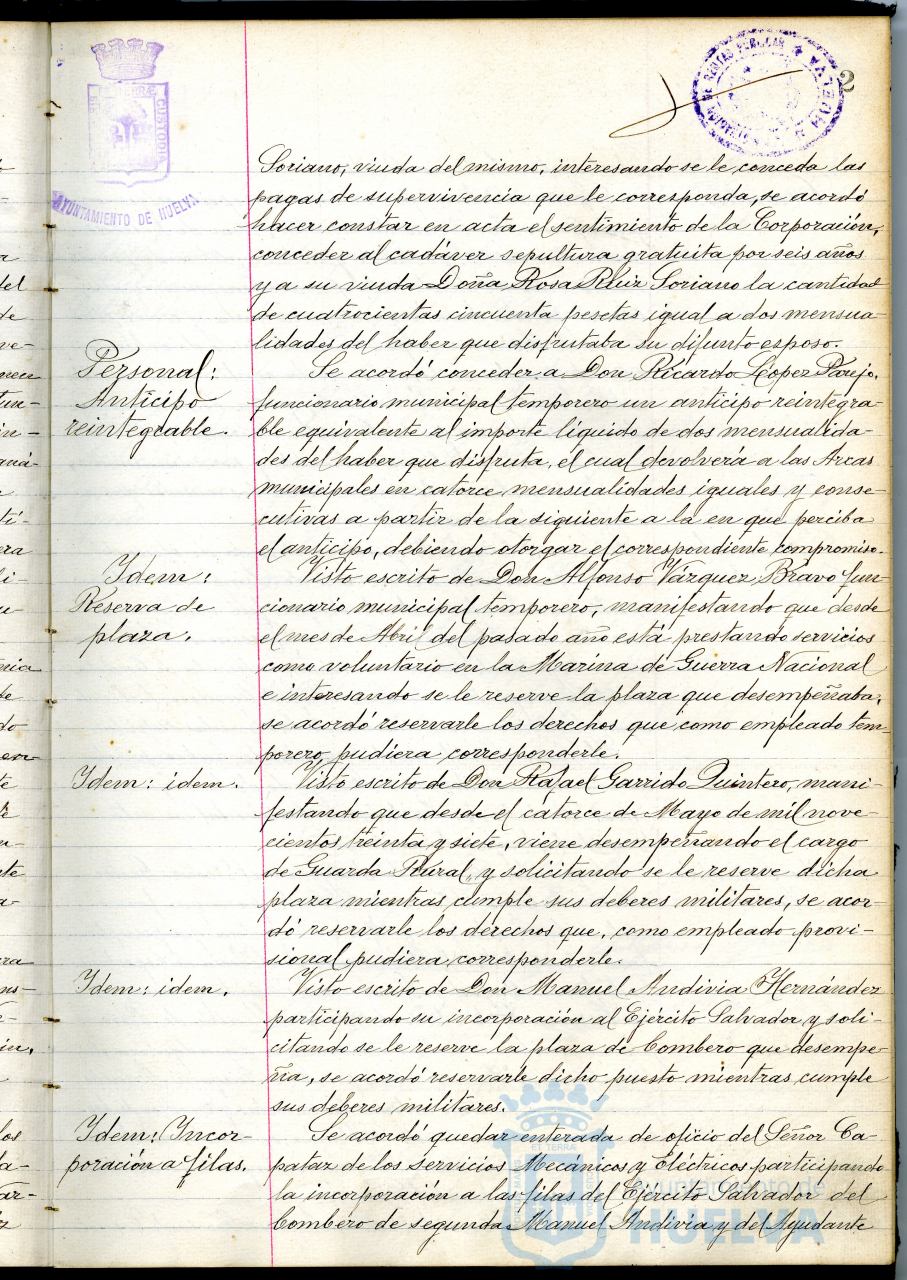 2
AYUNTAMIENTO DE HUELVA
CUSTODIA
HUELVA
Soriano, viuda del mismo, interesando se le conceda las
pagas de supervivencia que le corresponda, se acordó
hacer constar en acta el sentimiento de la Corporación,
conceder al cadáver sepultura gratuita por seis años
y a su viuda Doña Rosa Ruiz Soriano la cantidad
de cuatrocientas cincuenta pesetas igual a dos mensua-
lidades del haber que disfrutaba su difunto esposo.
Personal:
Anticipo
reintegrable.
Se acordó conceder a Don Ricardo López Parejo,
funcionario municipal temporero un anticipo reintegra-
ble equivalente al importe líquido de dos mensualida-
des del haber que disfruta, el cual devolvería a las Arcas
municipales en catorce mensualidades iguales y conse-
cutivas a partir de la siguiente a la en que perciba
el anticipo, debiendo otorgar el correspondiente compromiso.
Idem:
Reserva de
plaza.
Visto escrito de Don Alfonso Vázquez Bravo fun-
cionario municipal temporero, manifestando que desde
el mes de Abril del pasado año está prestando servicios
como voluntario en la Marina de Guerra Nacional
e interesando se le reserve la plaza que desempeñaba,
se acordó reservarle los derechos que como empleado tem-
porero, pudiera corresponderle.
Idem: idem.
Visto escrito de Don Rafael Garrido Quintero, mani-
festando que desde el catorce de Mayo de mil nove-
cientos treinta y siete, viene desempeñando el cargo
de Guarda Rural, y solicitando se le reserve dicha
plaza mientras cumple sus deberes militares, se acor-
dó reservarle los derechos que, como empleado provi-
sional pudiera corresponderle.
Idem: idem.
Visto escrito de Don Manuel Andivia Hernández
participando su incorporación al Ejército Salvador y soli-
citando se le reserve la plaza de Bombero que desempe-
ña, se acordó reservarle dicho puesto mientras cumple
sus deberes militares.
Idem: Incor-
poración a filas.
Se acordó quedar enterada de oficio del Señor Ca-
pataz de los servicios Mecánicos y Eléctricos participando
la incorporación a las filas del Ejército Salvador del
Bombero de segunda Manuel Andivia y del Ayudante
Ayuntamiento de
HUELVA